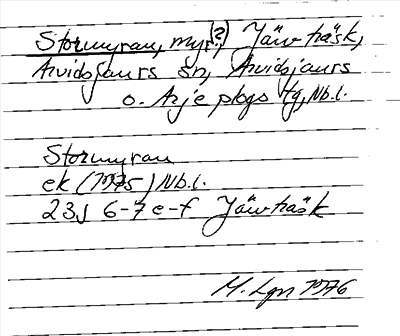 Stormyran, myr(?) Järvträsk,
Arvidsjaurs sn, Arvidsjaurs
o. Arjeplogs tg, Nb.l.
Stormyran
ek (1975) Nb.l.
23J 6-7 e-f Järvträsk
M. Lgn 1976